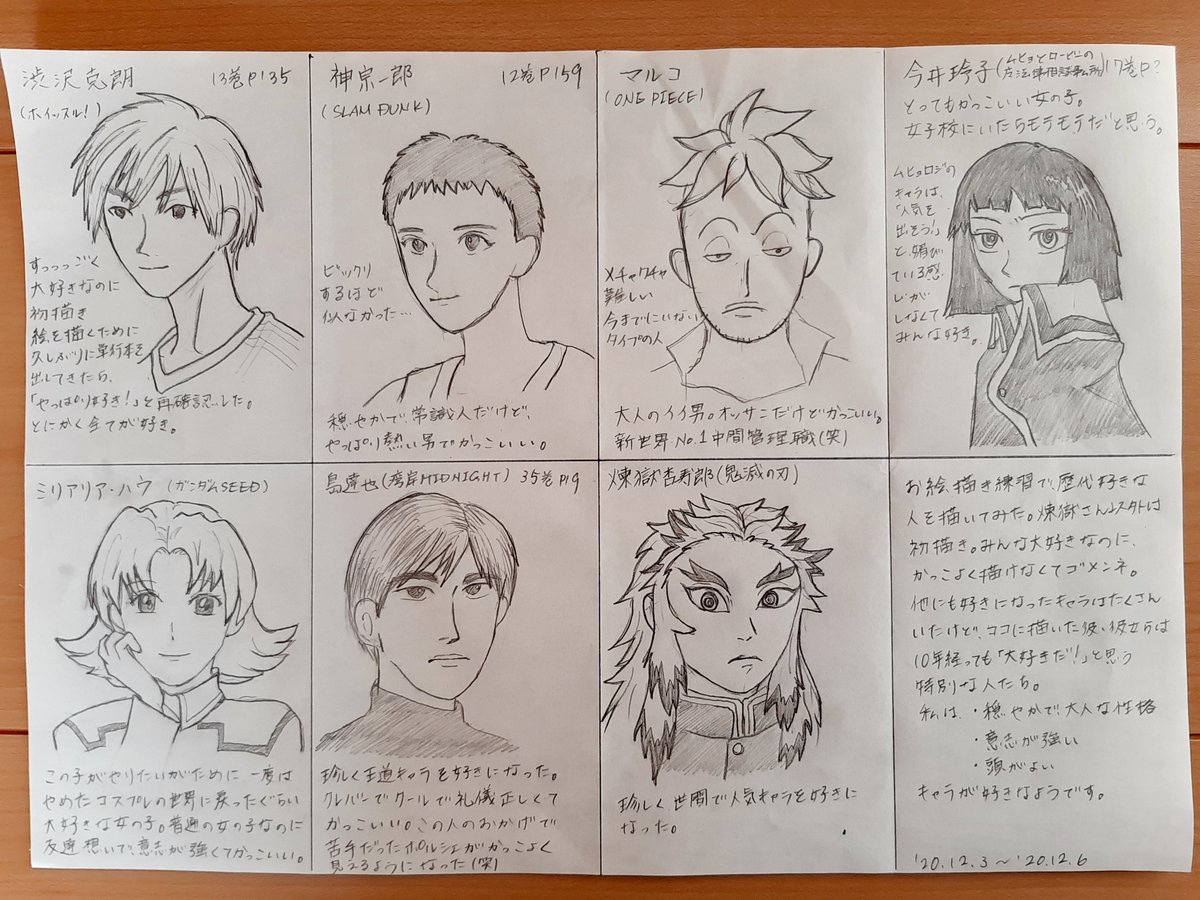 渋沢克朗 13巻P135
(ホイッスル!)
すっっっごく
大好きなのに
初描き
絵を描くために
久しぶりに単行本を
出してきたら、
「やっぱり好き!」と再確認した。
とにかく全てが好き。
神宗一郎 12巻P159
(SLAM DUNK)
ビックリ
するほど
似なかった…
穏やかで、常識人だけど、
やっぱり熱い男でかっこいい。
マルコ
(ONE PIECE)
メチャクチャ
難しい
今までにいない
タイプの人
大人のイイ男。オッサンだけどかっこいい。
新世界No.1中間管理職(笑)
今井玲子(ムヒョとロージーの魔法律相談事務所)17巻P?
とってもかっこいい女の子。
女子校にいたらモテモテだと思う。
ムヒョロジの
キャラは、
「人気を
出そう!」
と、媚び
ている感
じが
しなくて
みんな好き。
ミリアリア・ハウ (ガンダムSEED)
この子がやりたいがために、一度は
やめたコスプレの世界に戻ったぐらい
大好きな女の子。普通の女の子なのに
友達想いで、意志が強くてかっこいい。
島達也(湾岸MIDNIGHT) 35巻P19
珍しく王道キャラを好きになった。
クレバーでクールで礼儀正しくて
かっこいい。この人のおかげで
苦手だったポルシェがかっこよく
見えるようになった(笑)
煉獄杏寿郎(鬼滅の刃)
珍しく世間で人気キャラを好きに
なった。
お絵描き練習で、歴代好きな
人を描いてみた。煉獄さん以外は
初描き。みんな大好きなのに、
かっこよく描けなくてゴメンネ。
他にも好きになったキャラはたくさん
いたけど、ココに描いた彼・彼女らは
10年経っても「大好きだ!」と思う
特別な人たち。
私は、・穏やかで、大人な性格
・意志が強い
・頭がよい
キャラが好きなようです。
'20.12.3〜'20.12.6